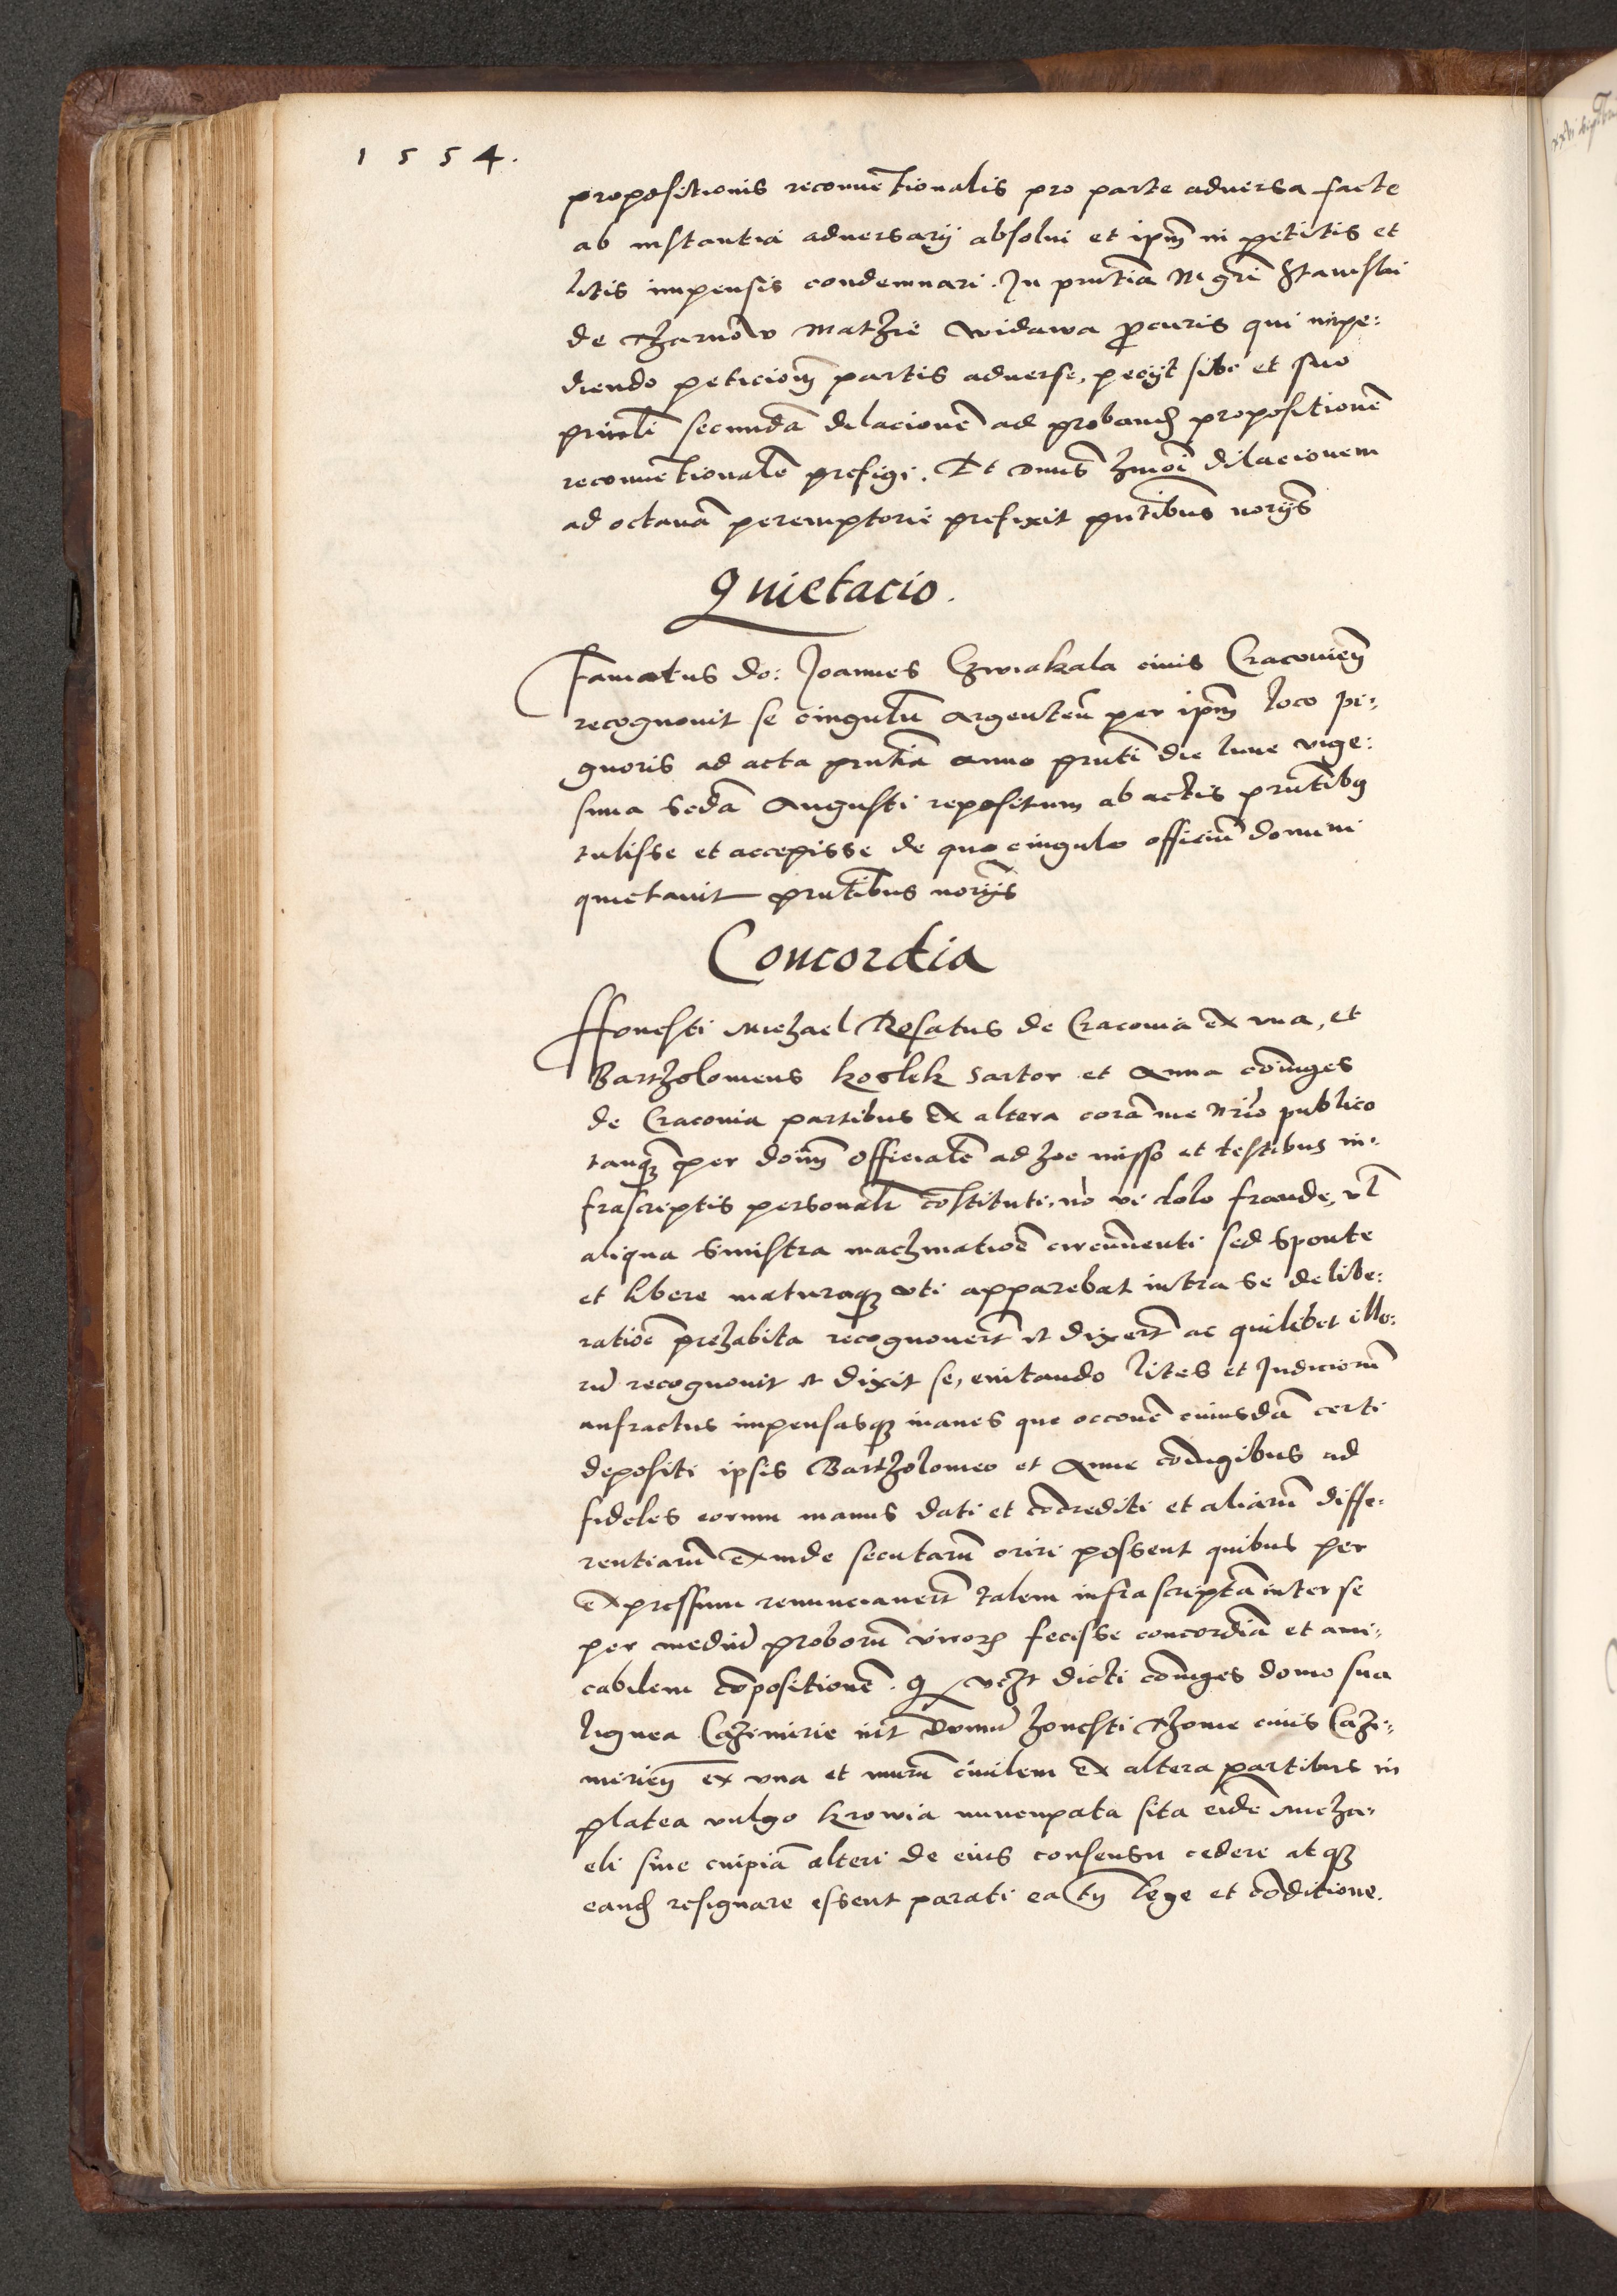 1554.
propositionis reconuẽtionalis pro parte aduersa facte
ab instantia aduersarij absolui et ipm̃ in petitis et
litis impensis condemnari. In pñtia Mgri Stanislai
de Tharnow Mathie Widawa ꝓcuris qui impe:
diendo peticionẽ partis aduerse, peciit sibi et suo
prinₗi secundã dilacionẽ ad proband propositionẽ
reconuẽtionalẽ prefigi. Et dnus hmoi dilacionem
ad octauã peremptorie prefixit pñtibus norijs
Quietacio.
Famatus do: Joannes Gzwiakala ciuis Cracouieñ
recognouit se cingulũ argenteũ per ipm̃ loco pi:
gnoris ad acta pñtia anno pñti die lune vige:
sima scda Augusti repositum ab actis pñtibq
tulisse et accepisse de quo cingulo officiũ domini
quietauit pñtibus norijs
Concordia
Honesti Michael Rosatus de Cracouia ex vna, et
Bartholomeus Koslek sartor et Anna coiuges
de Cracouia partibus ex altera corã me nrio publico
tanqʒ per dom̃ officialẽ ad hoc misso et testibus in:
frascriptis personalr cõstituti, nõ vi dolo fraude, vl
aliqua sinistra machinatioẽ circũuenti sed sponte
et libere maturaqʒ vti apparebat intra se delibe:
ratioẽ prehabita recognouert et dixert ac quilibet illo:
rũ recognouit et dixit se, euitando lites et Judiciorũ
anfractus impensasqʒ inanes que occoñe cuiusdã certi
depositi ipsis Bartholomeo et Anne coiugibus ad
fideles eorum manus dati et cõcrediti et aliarũ diffe:
rentiarũ exinde secutarũ oriri possent quibus per
expressum renunciauert talem infrascriptã inter se
per mediũ proborũ viroꝝ fecisse concordiã et ami:
cabilem cõpositionẽ. q vzlt dicti coiuges domo sua
lignea Cazimirie int domũ honesti Thome ciuis Cazi:
mirieñ ex vna et murũ ciuilem ex altera partibus in
platea vulgo Krowia nuncupata sita eidẽ Micha:
eli siue cuipiã alteri de eius consensu cedere atqʒ
eand resignare essent parati ea tñ lege et cõditione.